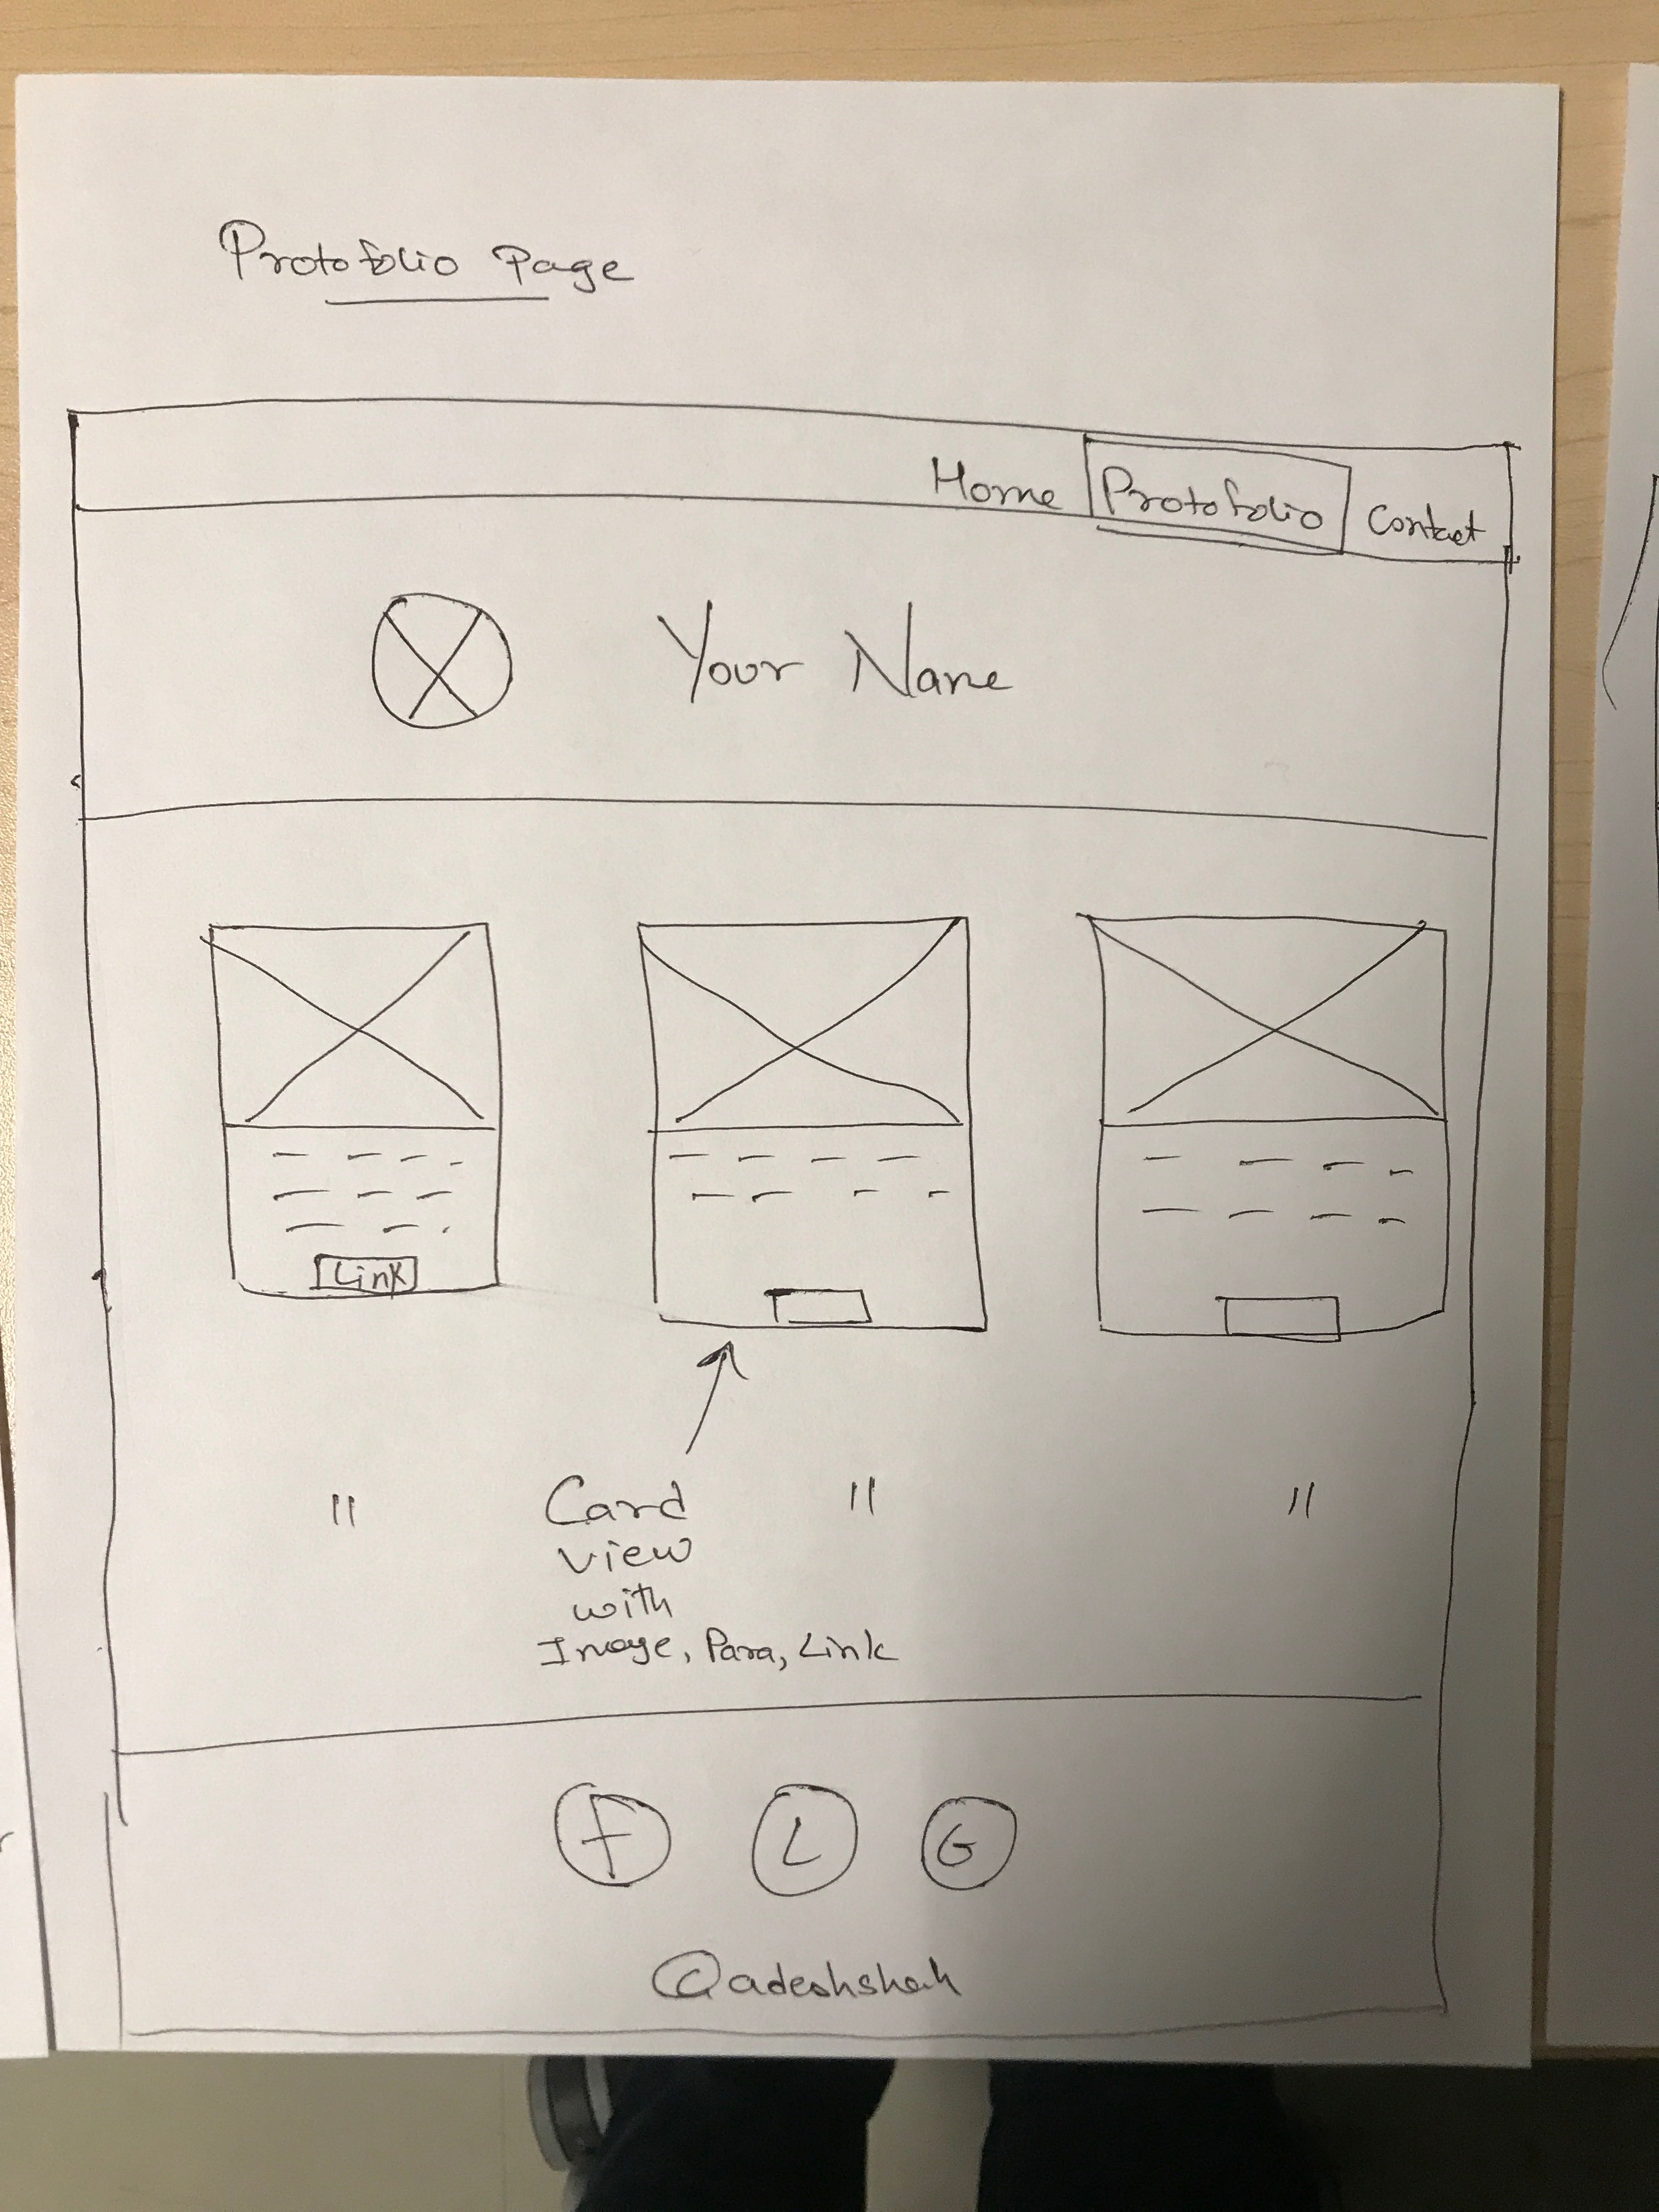 Protofolio Page
Home Protofolio Contact
Your Name
Link
" Card " "
view
with
Image, Para, Link
F L G
@adeshshah